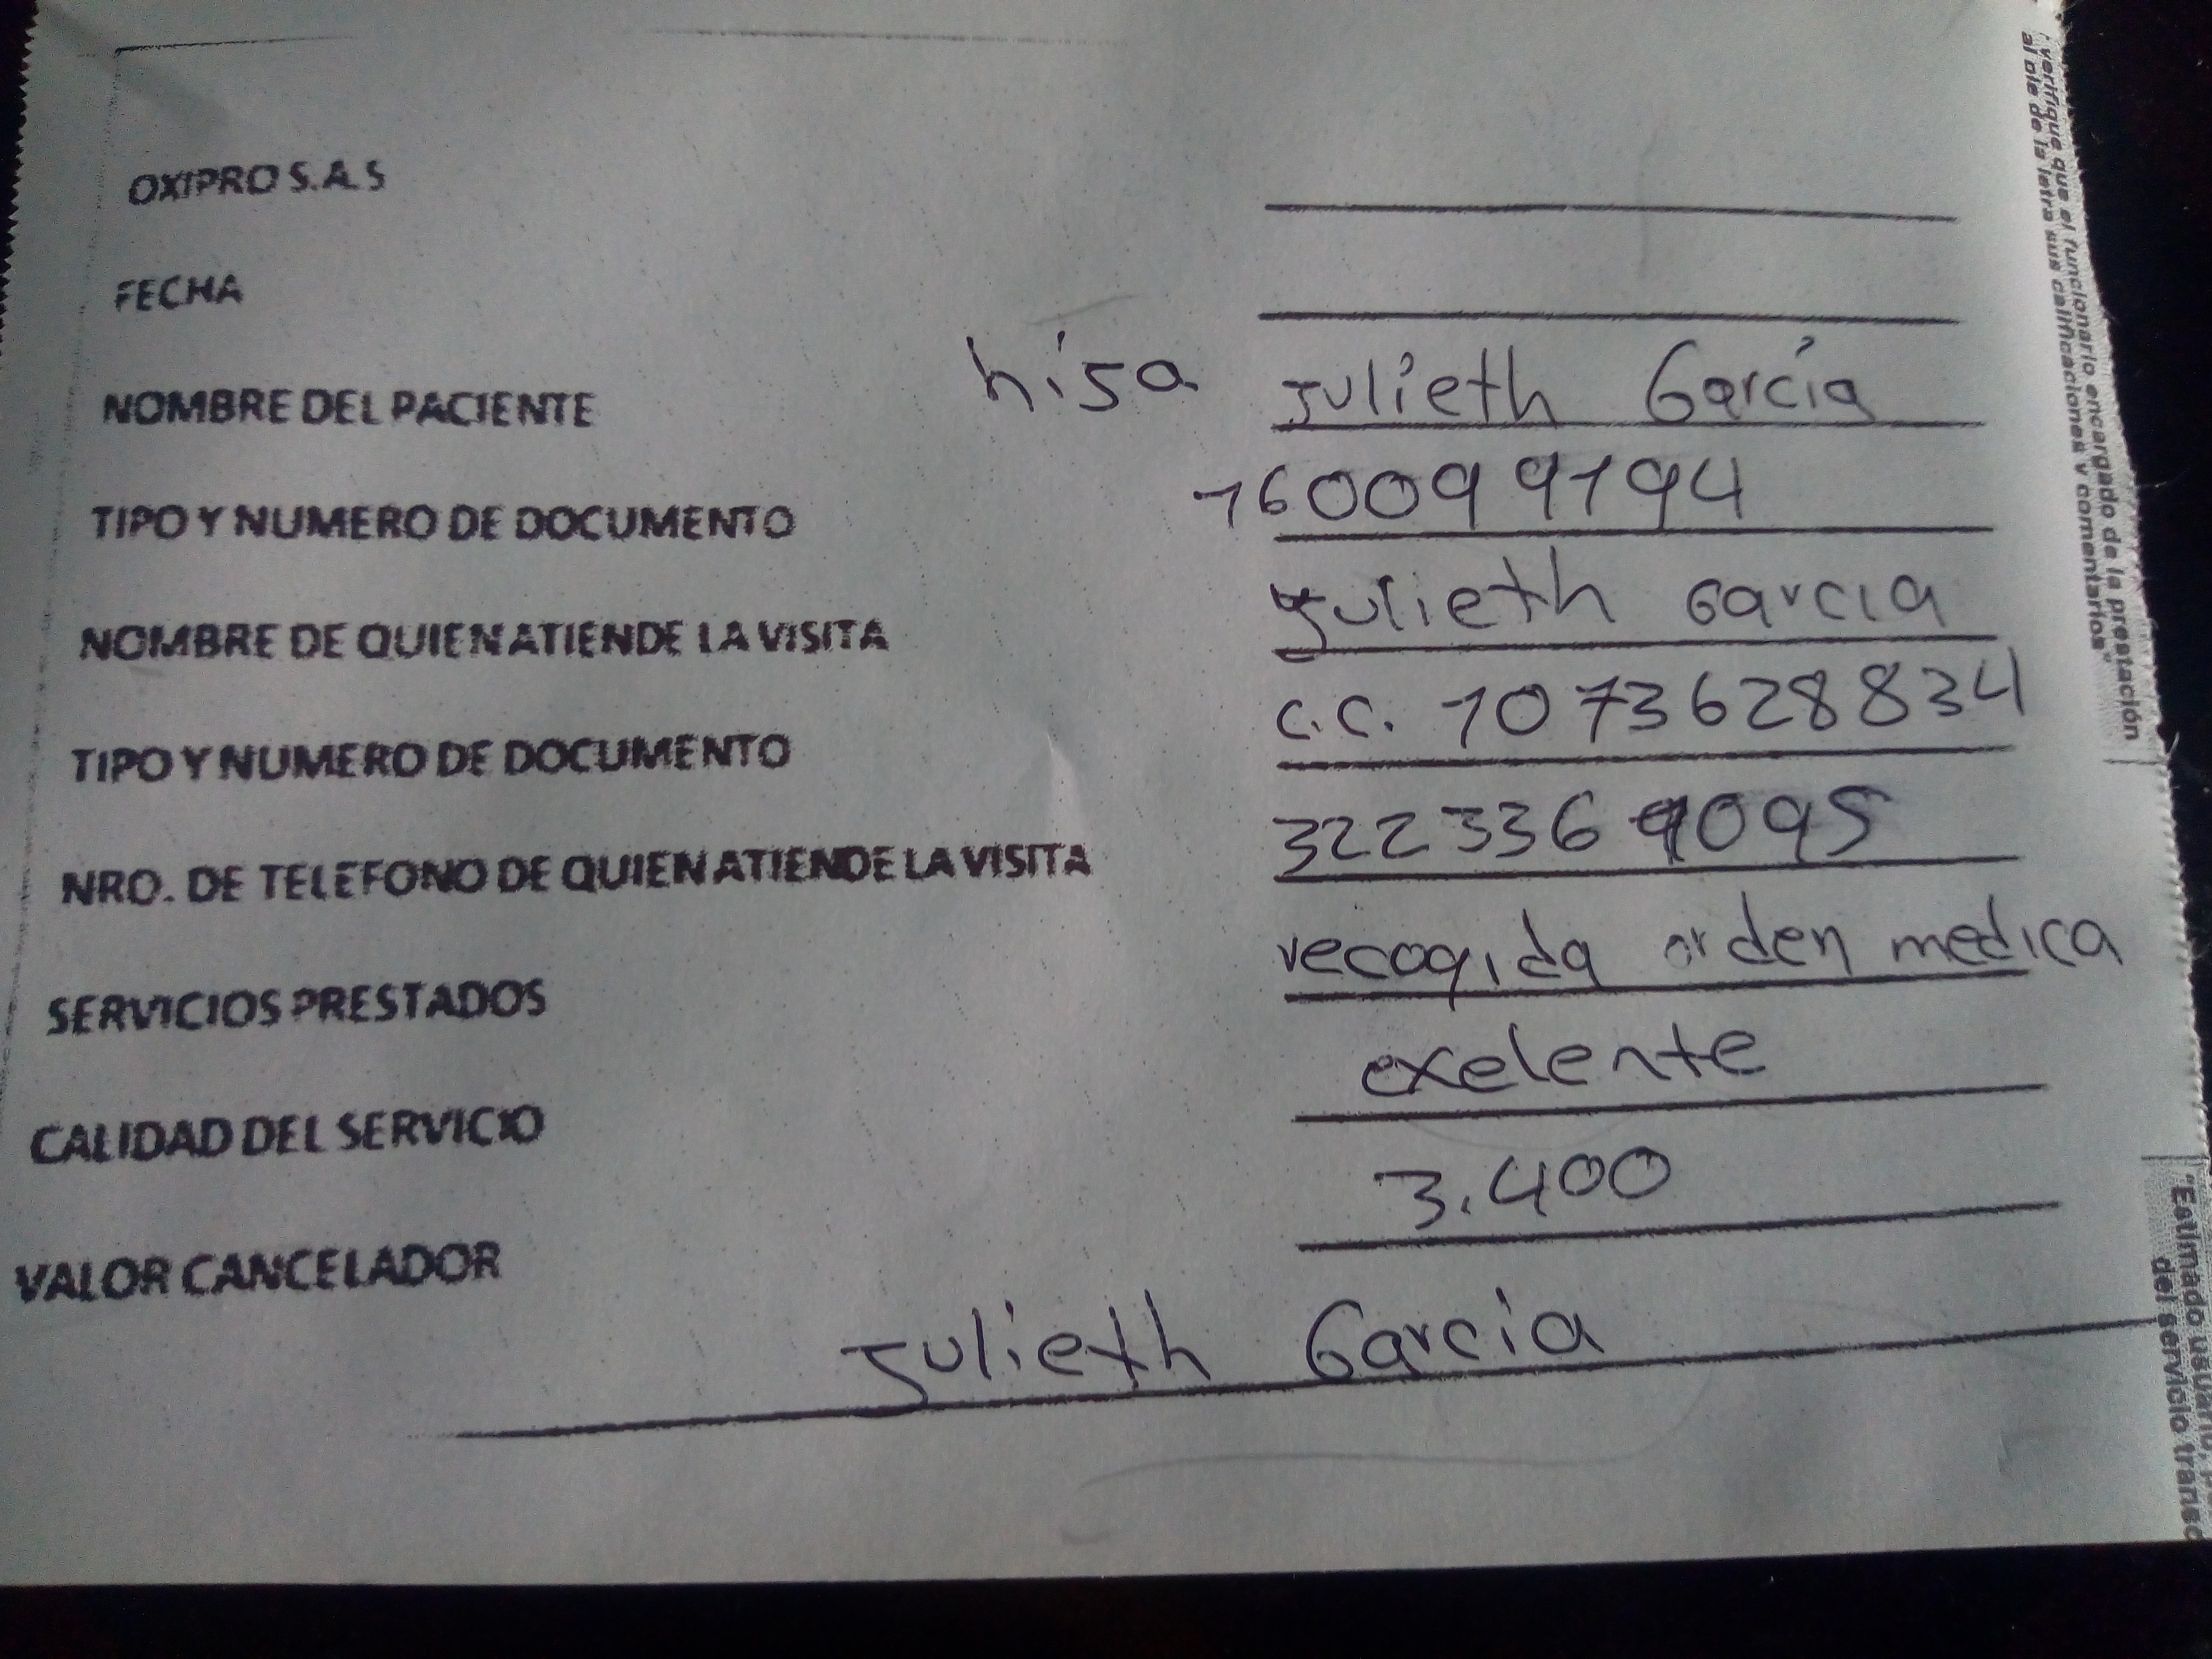 OXIPRO S.A.S
FECHA
NOMBRE DEL PACIENTE hija Julieth García
TIPO Y NUMERO DE DOCUMENTO 160099194
NOMBRE DE QUIEN ATIENDE LA VISITA Julieth Garcia
TIPO Y NUMERO DE DOCUMENTO C.C. 1073628834
NRO. DE TELEFONO DE QUIEN ATIENDE LA VISITA 322336 9095
SERVICIOS PRESTADOS recogida orden medica
CALIDAD DEL SERVICIO exelente
VALOR CANCELADOR 3.400
Julieth Garcia
"Estimado usuario,
verifique que el funcionario encargado de la prestación
del servicio
al pie de la letra sus calificaciones y comentarios"